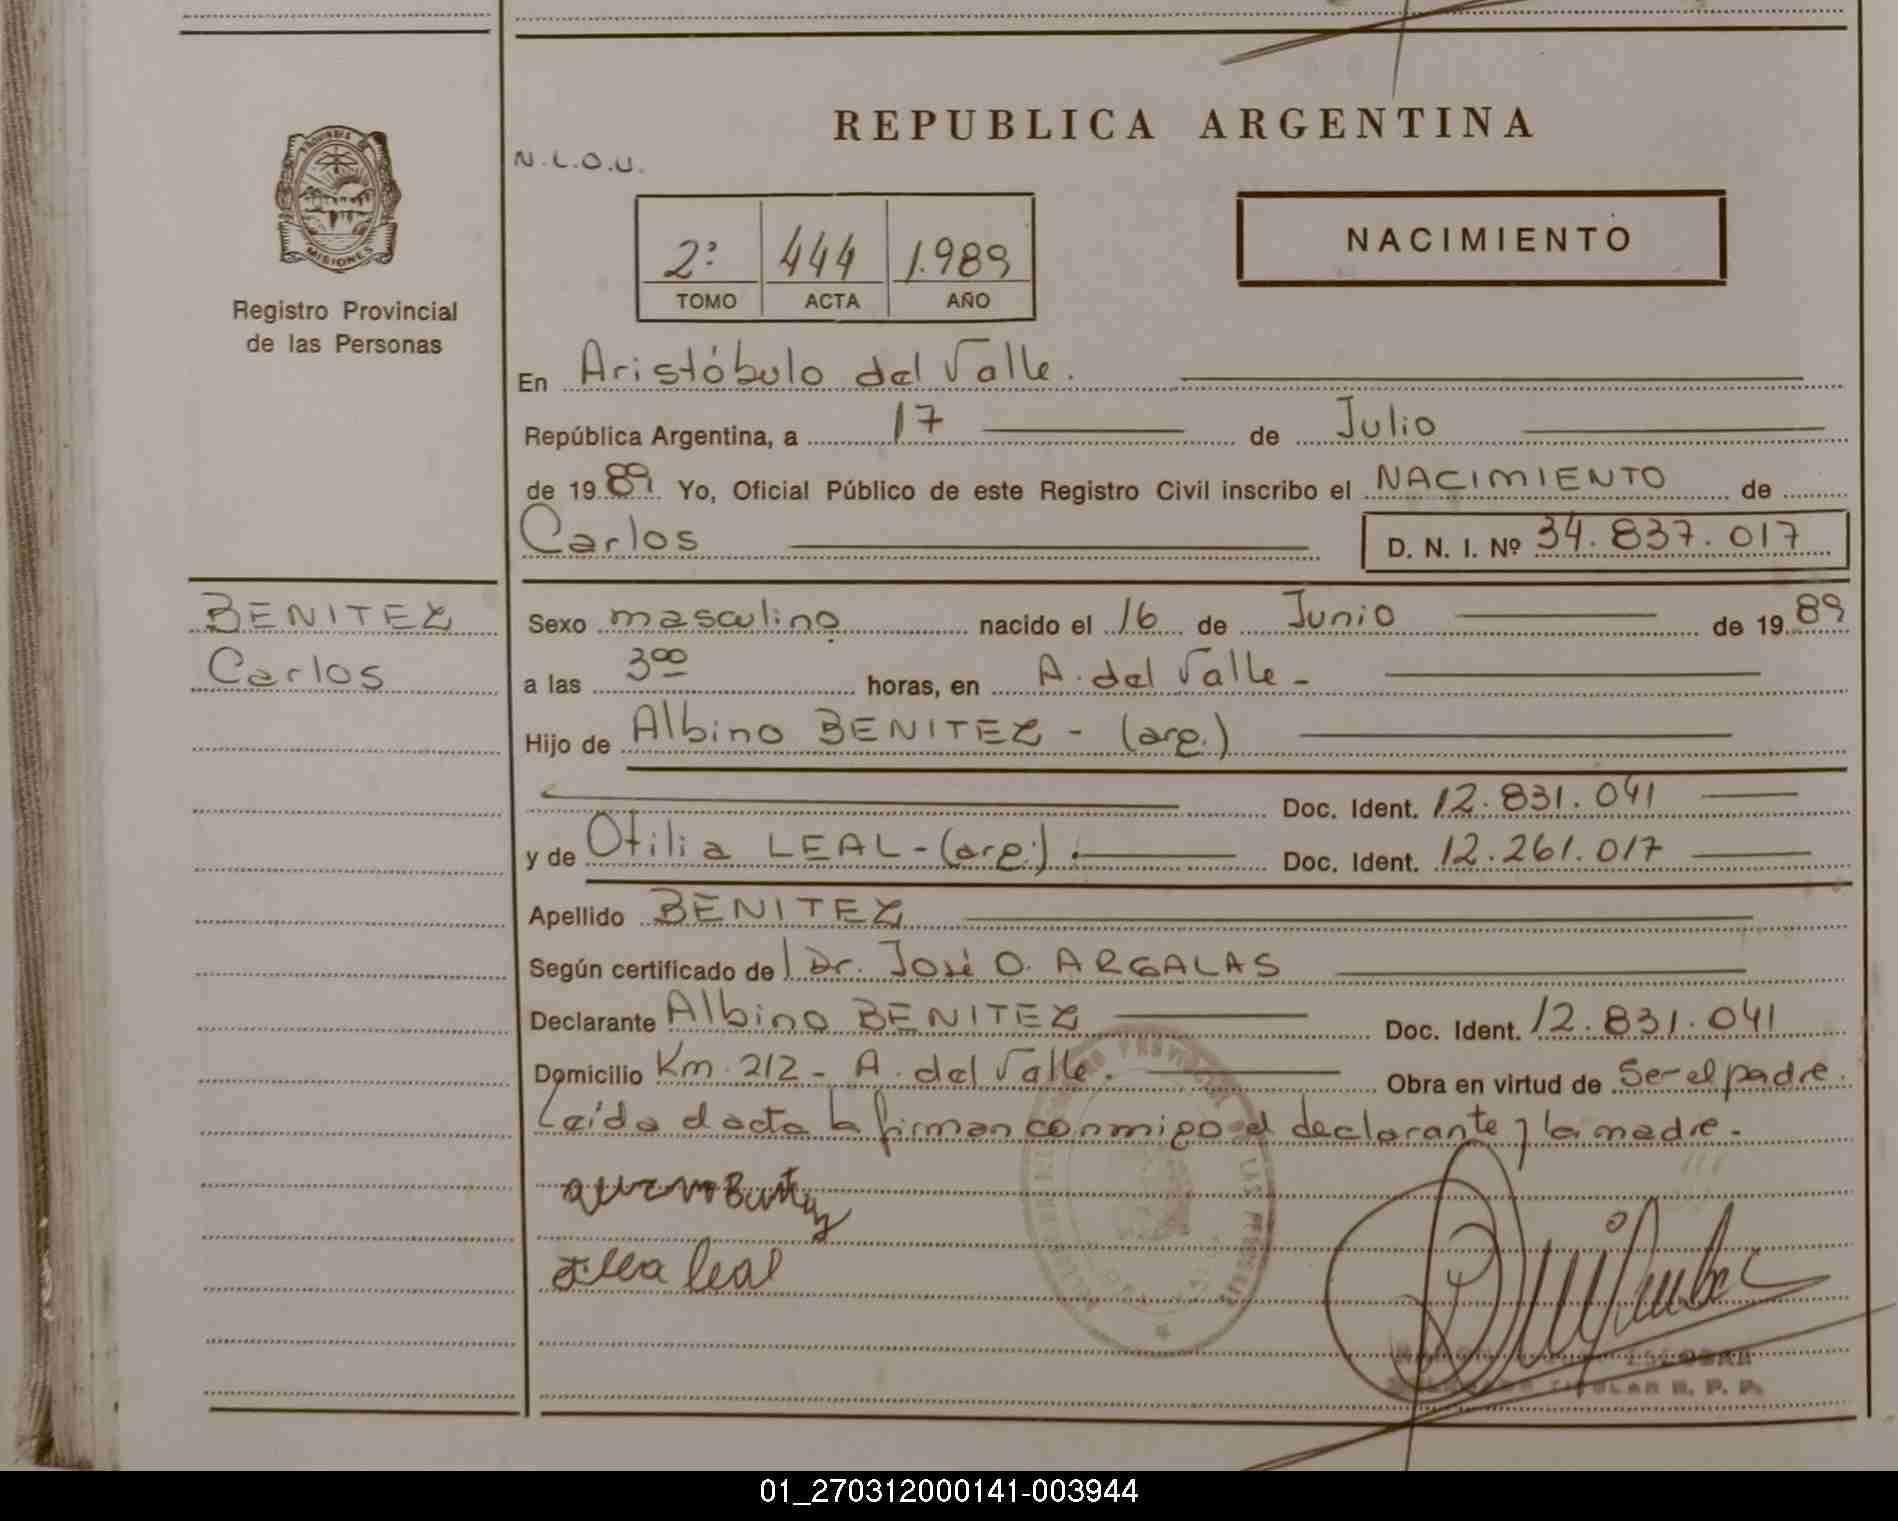 REPUBLICA ARGENTINA
N.L.O.U.
PROVINCIA DE
MISIONES
Registro Provincial
de las Personas
2º 444 1.989
TOMO ACTA AÑO
NACIMIENTO
En Aristóbulo del Valle.
República Argentina, a 17 de Julio
de 1989. Yo, Oficial Público de este Registro Civil inscribo el NACIMIENTO de
Carlos D. N. I. Nº 34.837.017
BENITEZ
Carlos
Sexo masculino nacido el 16 de Junio de 1989
a las 3 00 horas, en A. del Valle -
Hijo de Albino BENITEZ - (arg.)
Doc. Ident. 12.831.041
y de Otilia LEAL - (arg.). Doc. Ident. 12.261.017
Apellido BENITEZ
Según certificado de l Dr. José O. ARGALAS
Declarante Albino BENITEZ Doc. Ident. 12.831.041
Domicilio Km. 212 - A. del Valle. Obra en virtud de Ser el padre.
Leída el acta la firman conmigo el declarante y la madre.
leal
ESCOBAR
TITULAR R. P. P.
01_270312000141-003944